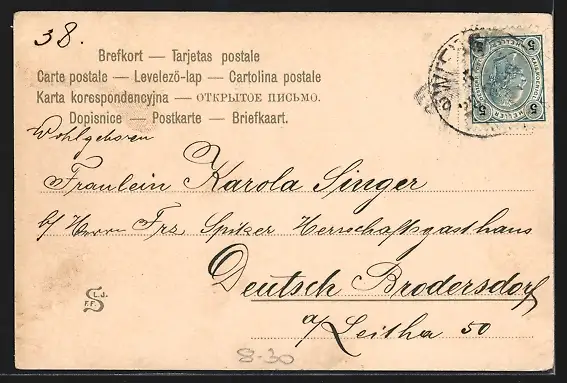 38.
Brefkort — Tarjetas postale
Carte postale — Levelező-lap — Cartolina postale
Karta korespondencyjna — ОТКРЫТОЕ ПИСЬМО.
Dopisnice — Postkarte — Briefkaart.
Wohlgeboren
Fraulein Karola Singer
b/ Herrn Frz Spitzer Herrschaftsgasthaus
Deutsch Brodersdorf
a/ Leitha 50
S L.J. F.F.
8-30
5 HELLER 5